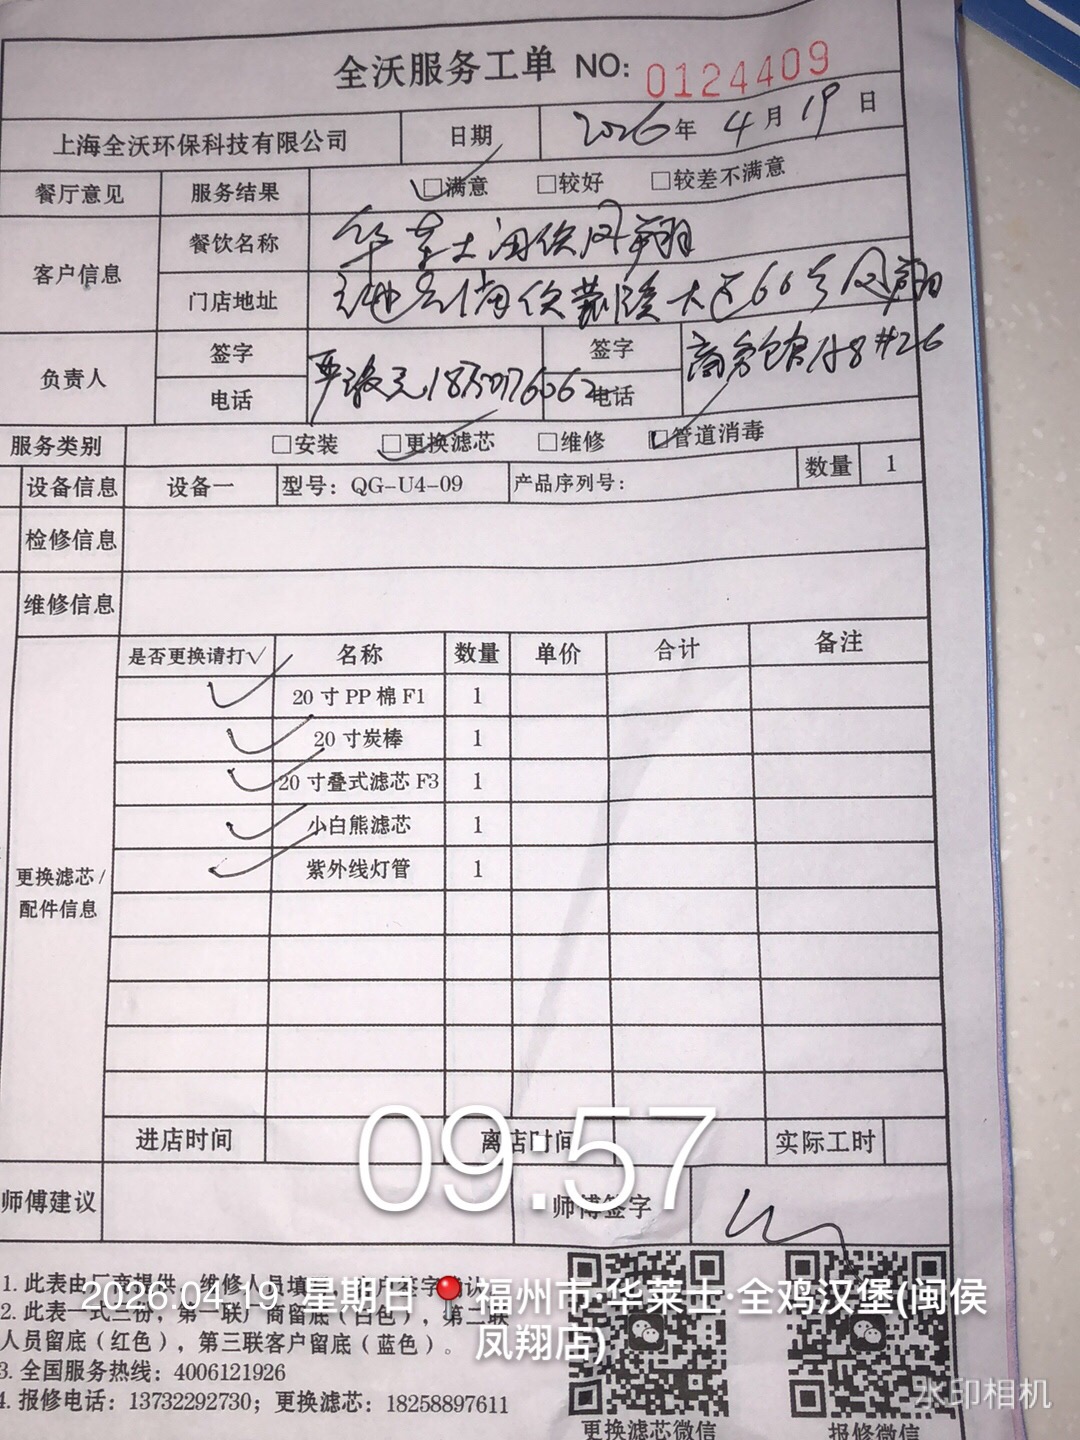 全沃服务工单 NO: 0124409
上海全沃环保科技有限公司 日期 2026年 4月 19日
餐厅意见 服务结果 □满意 □较好 □较差不满意
客户信息 餐饮名称 华莱士闽侯凤翔
门店地址 福州闽侯 大 66号凤翔
负责人 签字 签字 8#26
电话 电话
服务类别 □安装 □更换滤芯 □维修 □管道消毒
设备信息 设备一 型号：QG-U4-09 产品序列号： 数量 1
检修信息
维修信息
是否更换请打√ 名称 数量 单价 合计 备注
✓ 20寸PP棉F1 1
✓ 20寸炭棒 1
✓ 20寸叠式滤芯F3 1
✓ 小白熊滤芯 1
✓ 紫外线灯管 1
更换滤芯/
配件信息
进店时间 离店时间 实际工时
09:57
师傅建议 师傅签字
1. 此表由厂商提供，维修人员填
2. 此表一式三份，第一联厂商留底（白色），第二联
人员留底（红色），第三联客户留底（蓝色）。
3. 全国服务热线：4006121926
4. 报修电话：13732292730；更换滤芯：18258897611
2026.04.19 星期日 福州市·华莱士·全鸡汉堡(闽侯
凤翔店)
更换滤芯微信 报修微信
水印相机